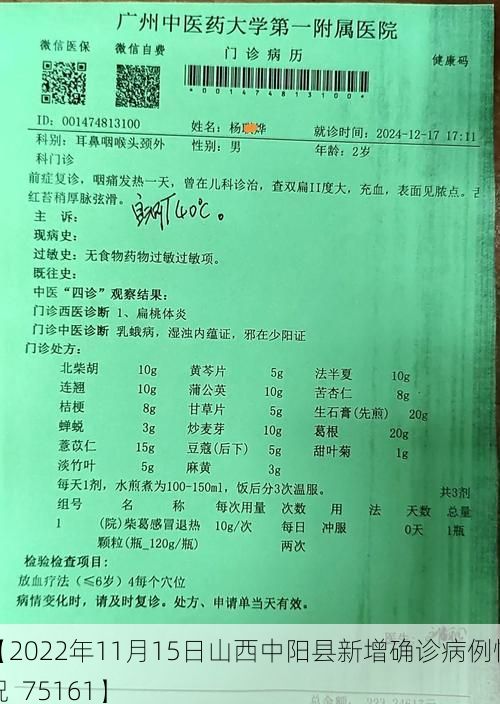 广州中医药大学第一附属医院
微信医保 微信自费 门诊病历 健康码
*001474813100*
ID: 001474813100 姓名: 杨 烨 就诊时间: 2024-12-17 17:11
科别: 耳鼻咽喉头颈外 性别: 男 年龄: 2岁
科门诊
前症复诊，咽痛发热一天，曾在儿科诊治，查双扁II度大，充血，表面见脓点。舌
红苔稍厚脉弦滑。
T40℃。
主 诉:
现病史:
过敏史: 无食物药物过敏过敏项。
既往史:
中医“四诊”观察结果:
门诊西医诊断 1、扁桃体炎
门诊中医诊断 乳蛾病，湿浊内蕴证，邪在少阳证
门诊处方:
北柴胡 10g 黄芩片 5g 法半夏 10g
连翘 10g 蒲公英 10g 苦杏仁 8g
桔梗 8g 甘草片 5g 生石膏(先煎) 20g
蝉蜕 3g 炒麦芽 10g 葛根 20g
薏苡仁 15g 豆蔻(后下) 5g 甜叶菊 1g
淡竹叶 5g 麻黄 3g
每天1剂，水煎煮为100-150ml，饭后分3次温服。 共3剂
组号 名 称 每次用量 次数 用 法 天数 总量
1 (院)柴葛感冒退热 10g/次 每日 冲服 0天 1瓶
颗粒(瓶_120g/瓶) 两次
检验检查项目:
放血疗法（≤6岁）4每个穴位
病情变化时，请及时复诊。处方、申请单当天有效。
【2022年11月15日山西中阳县新增确诊病例情
况 75161】